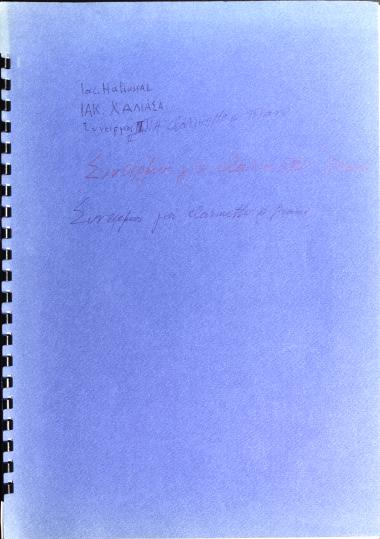 Iac. Haliassas
ΙΑΚ. ΧΑΛΙΑΣΑ
Συνειρμοί II ΓΙΑ clarinetto e piano
Συνειρμοί για clarinetto e piano
Συνειρμοί για clarinetto e piano